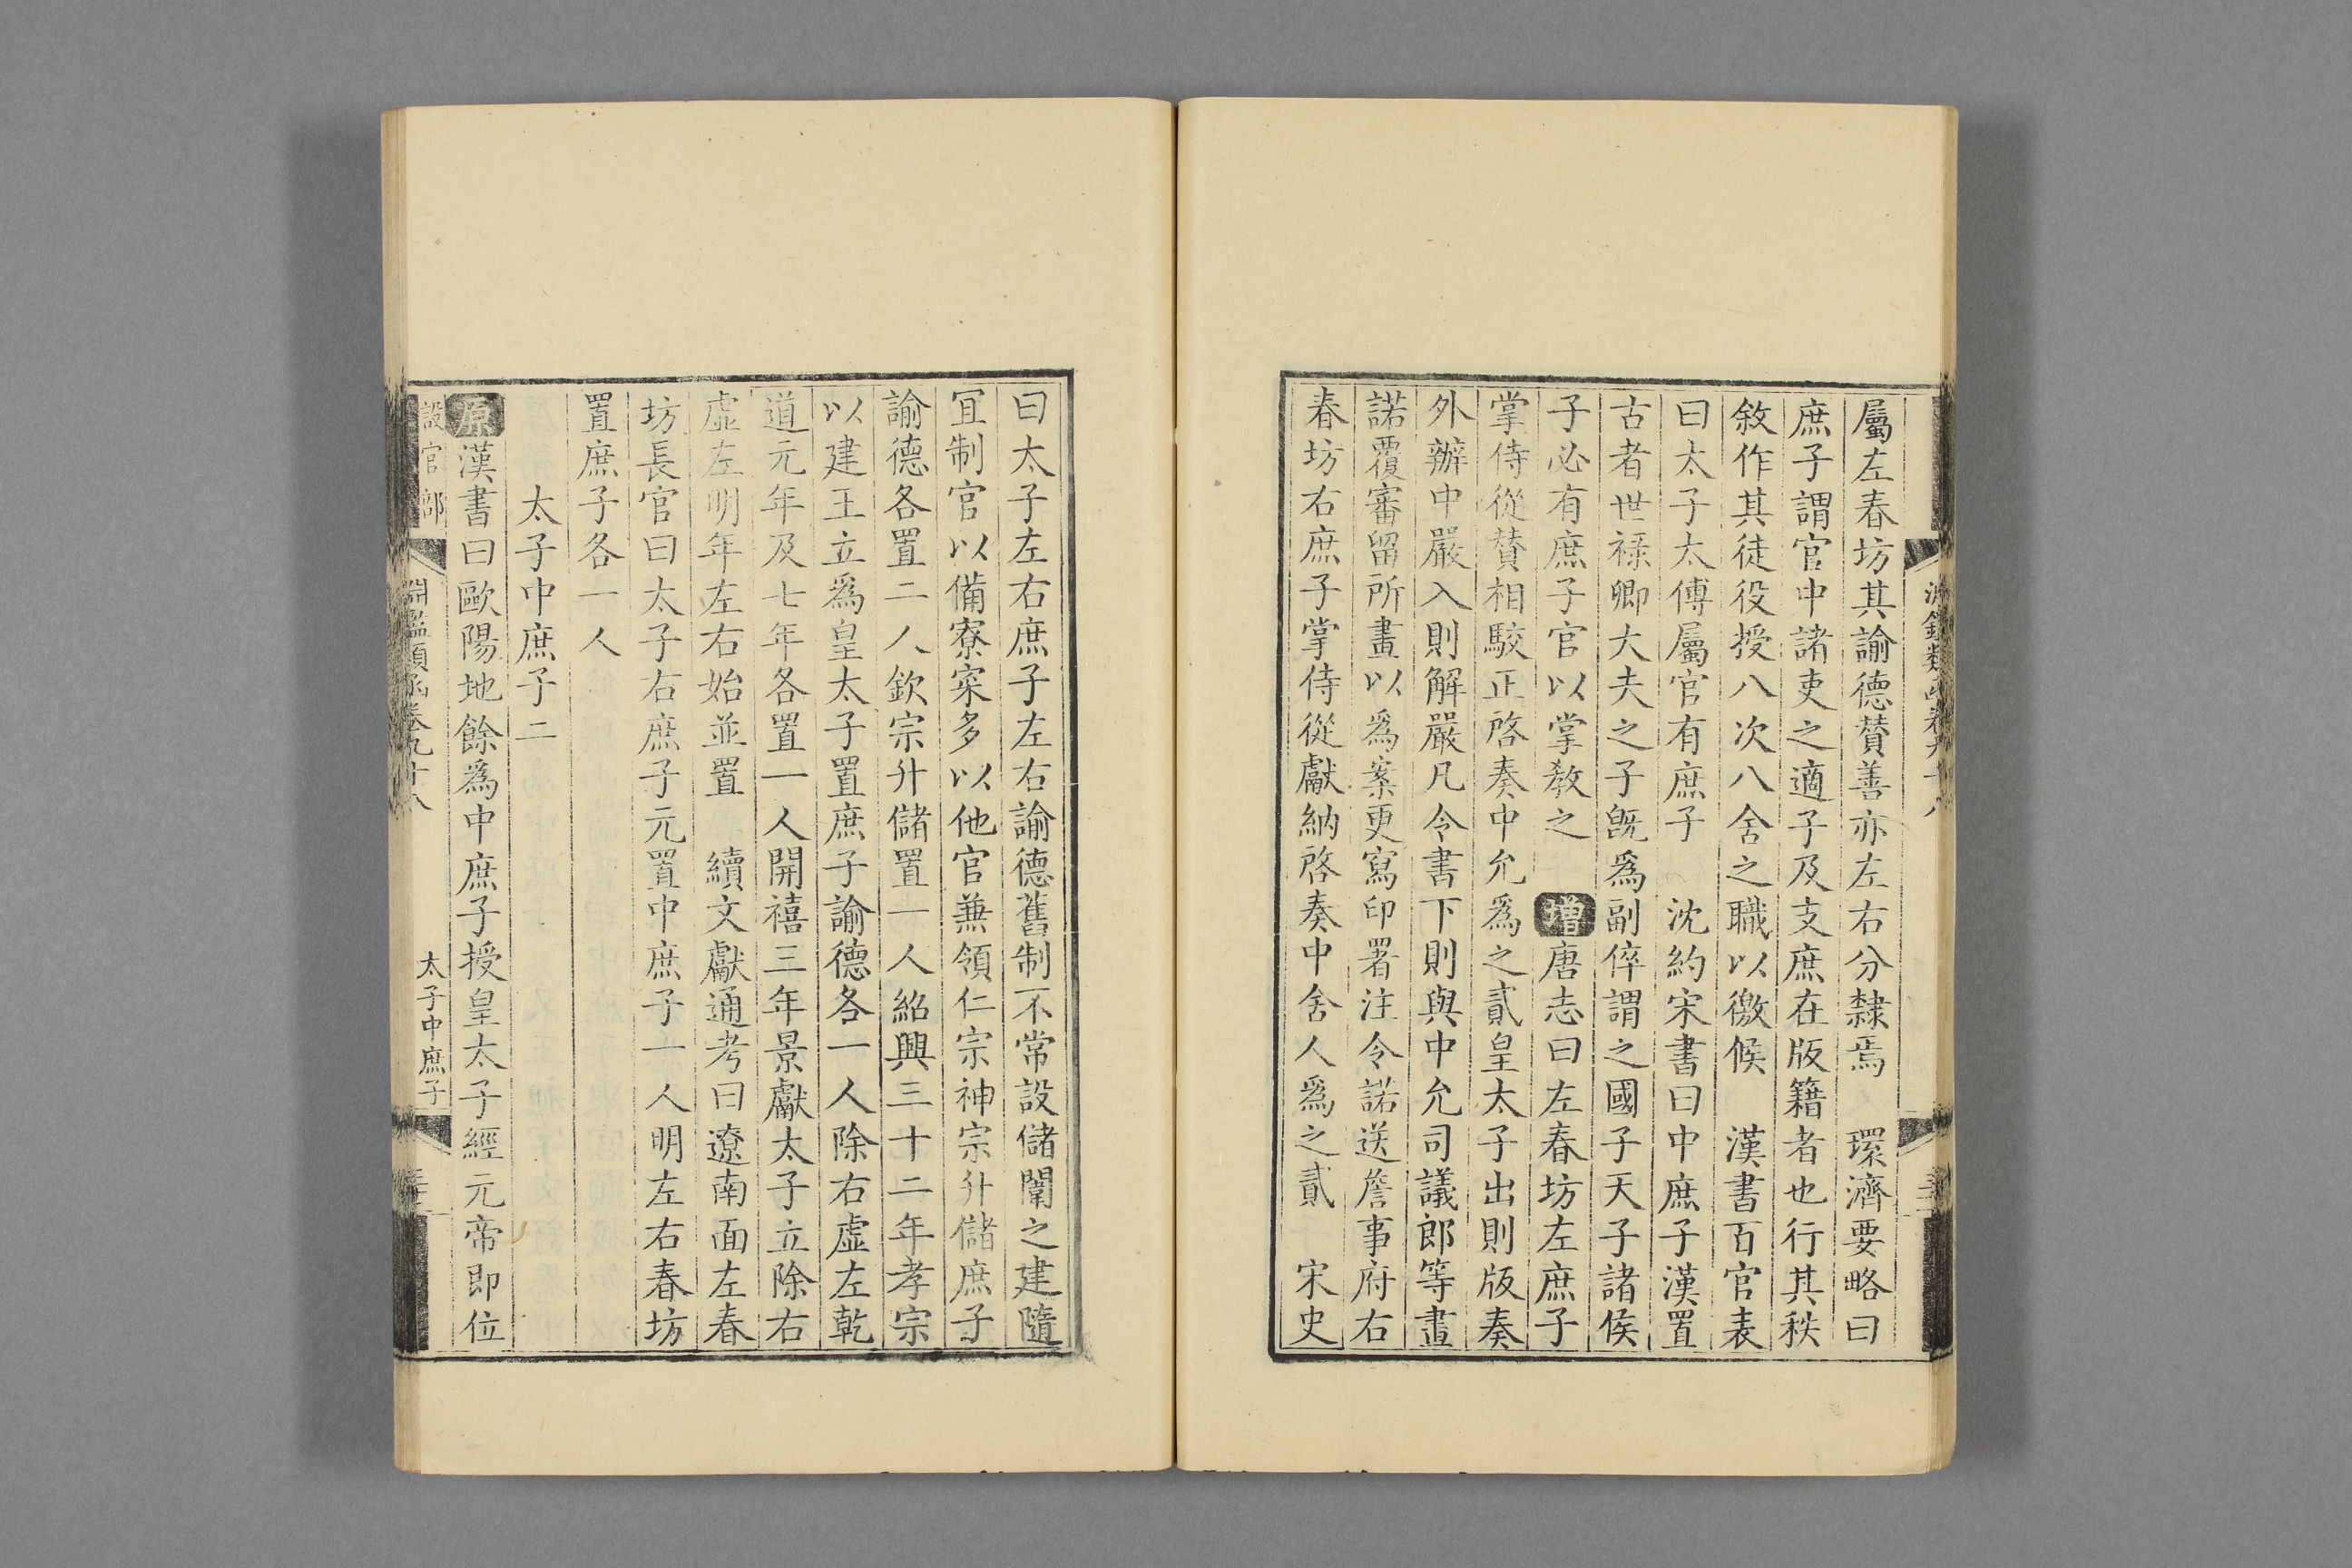 屬左春坊其諭德贊善亦左右分隸焉　環濟要略曰
庶子謂官中諸吏之適子及支庶在版籍者也行其秩
敘作其徒役授八次八舍之職以徼候　漢書百官表
曰太子太傅屬官有庶子　沈約宋書曰中庶子漢置
古者世祿卿大夫之子旣爲副倅謂之國子天子諸侯
子必有庶子官以掌教之　增唐志曰左春坊左庶子
掌侍從贊相駮正啓奏中允爲之貳皇太子出則版奏
外辦中嚴入則解嚴凡令書下則與中允司議郎等畫
諾覆審留所畫以爲案更寫印署注令諾送詹事府右
春坊右庶子掌侍從獻納啓奏中舍人爲之貳　宋史
曰太子左右庶子左右諭德舊制不常設儲闈之建隨
宜制官以備寮寀多以他官兼領仁宗神宗升儲庶子
諭德各置二人欽宗升儲置一人紹興三十二年孝宗
以建王立爲皇太子置庶子諭德各一人除右虛左乾
道元年及七年各置一人開禧三年景獻太子立除右
虛左明年左右始並置　續文獻通考曰遼南面左春
坊長官曰太子右庶子元置中庶子一人明左右春坊
置庶子各一人
太子中庶子二
原漢書曰歐陽地餘爲中庶子授皇太子經元帝即位
設官部　淵鑑類函卷九十八　太子中庶子